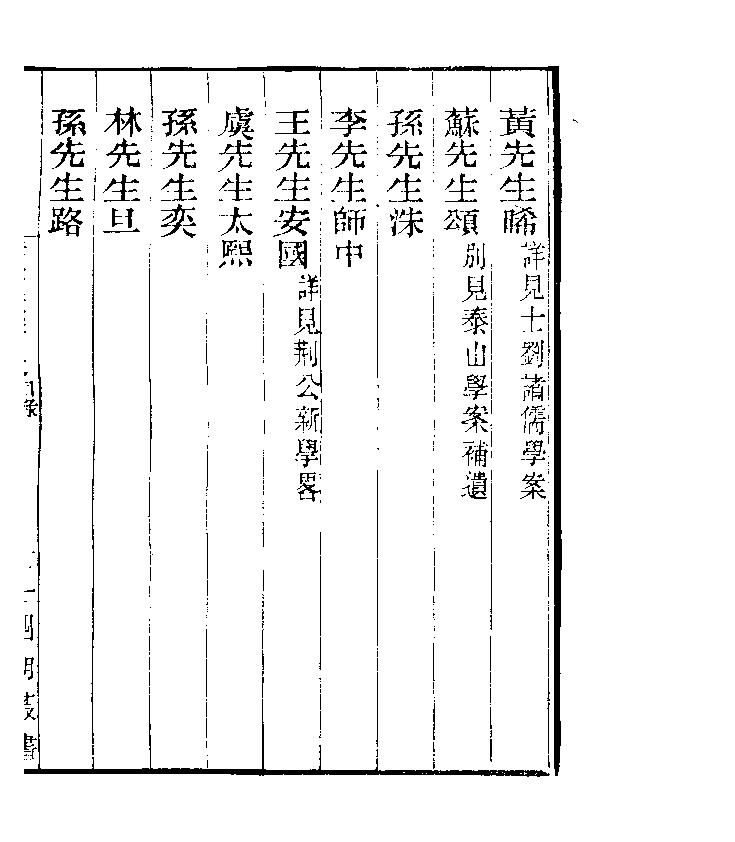 黃先生晞詳見士劉諸儒學案
蘇先生頌別見泰山學案補遺
孫先生洙
李先生師中
王先生安國詳見荆公新學畧
虞先生太熙
孫先生奕
林先生旦
孫先生路
目錄
四明叢書